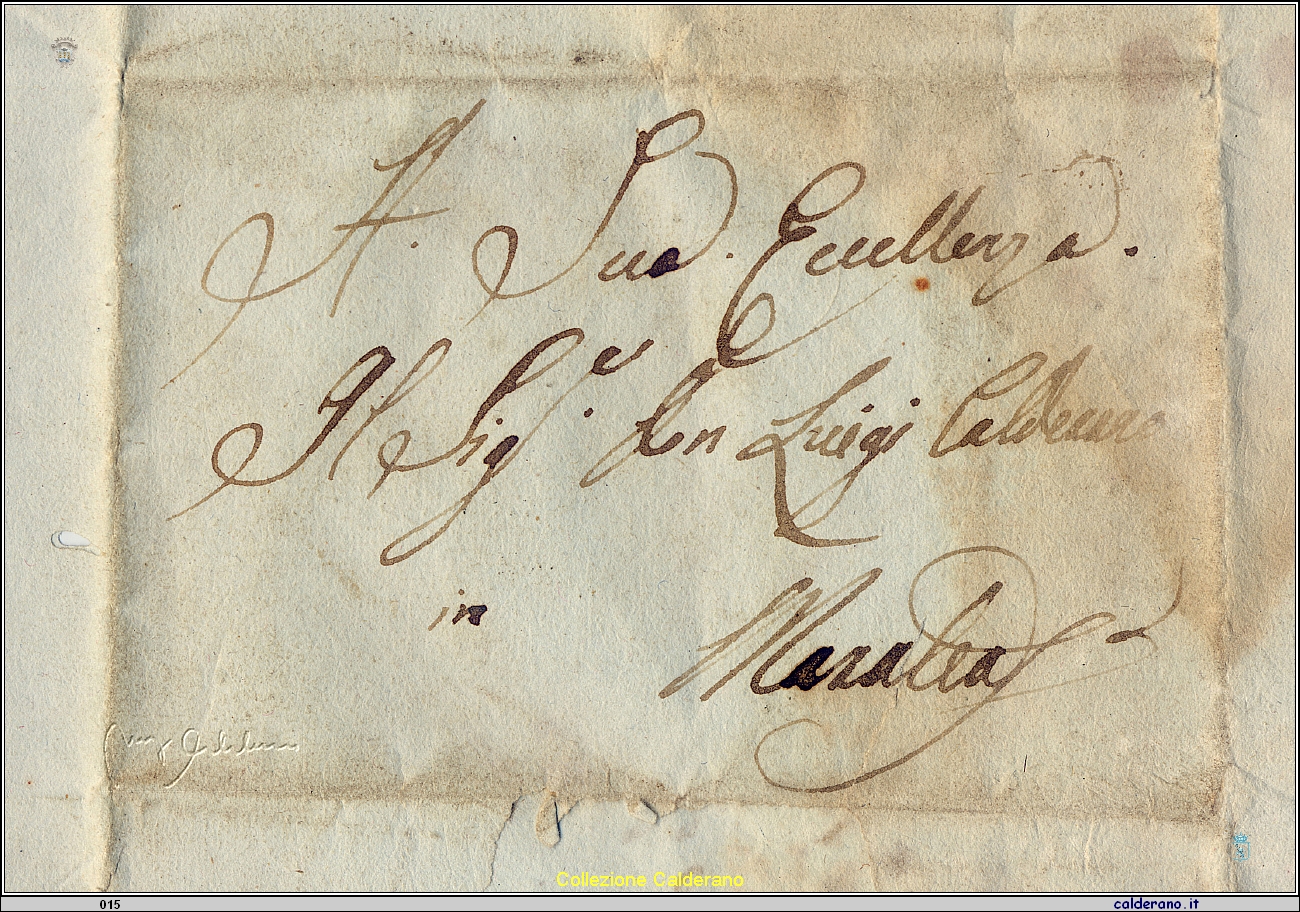 A. Sua. Eccellenza.
Il Sig.re Don Luigi Calderano
in Maratea
Collezione Calderano
015 calderano.it